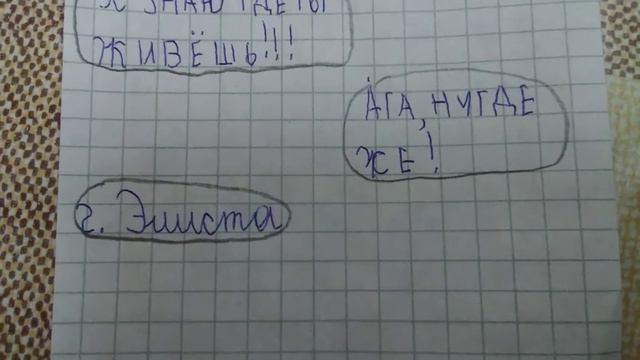 Я ЗНАЮ ГДЕ ТЫ
ЖИВЁШЬ!!!
АГА, НУ ГДЕ
ЖЕ!
г. Элиста